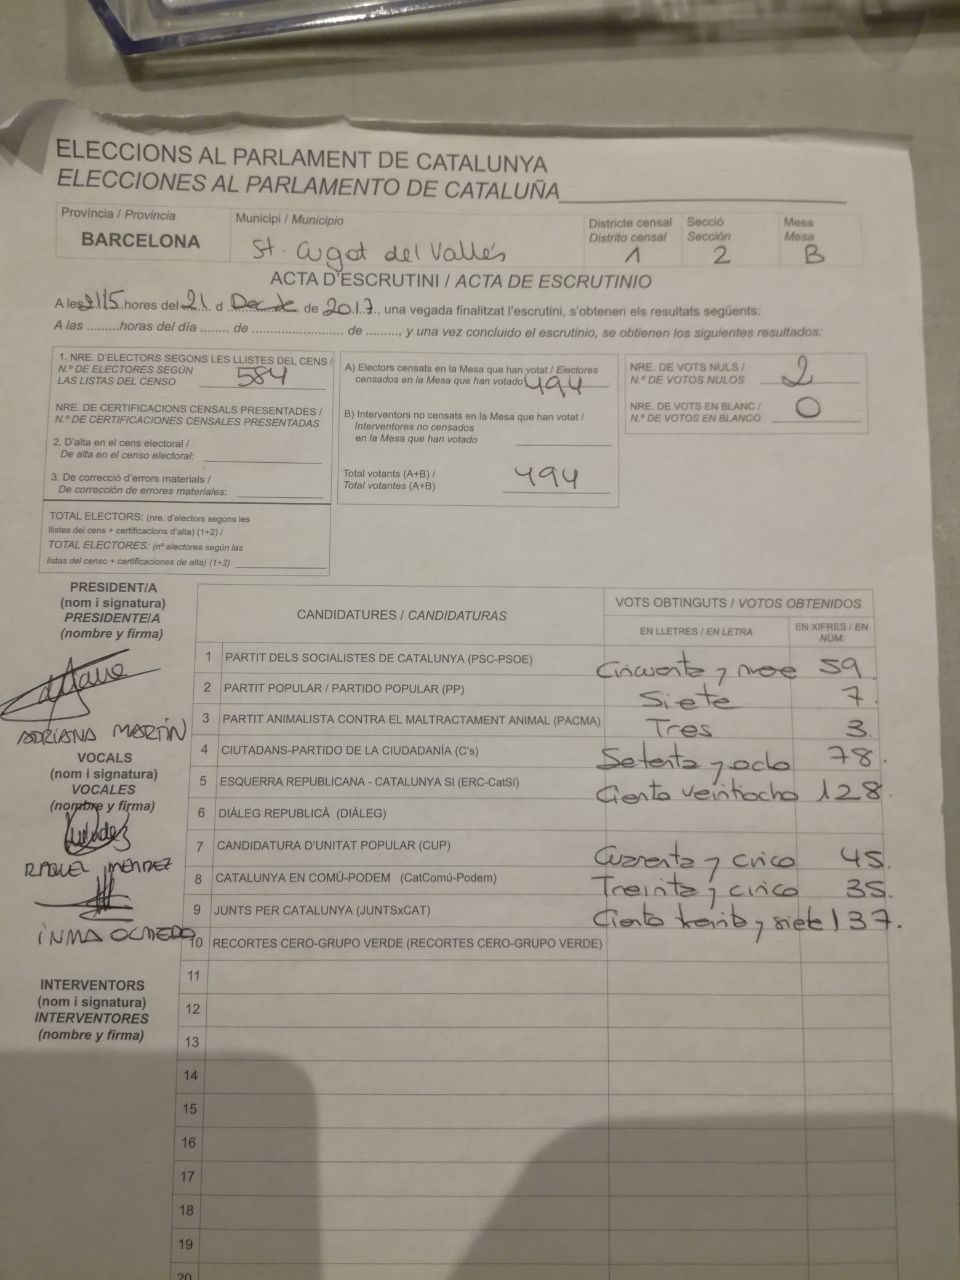 ELECCIONS AL PARLAMENT DE CATALUNYA
ELECCIONES AL PARLAMENTO DE CATALUÑA
Província / Provincia
BARCELONA
Municipi / Municipio
St. Cugat del Vallés
Districte censal
Distrito censal
1
Secció
Sección
2
Mesa
Mesa
B
ACTA D'ESCRUTINI / ACTA DE ESCRUTINIO
A les 21'15 hores del 21 d de 2017, una vegada finalitzat l'escrutini, s'obtenen els resultats següents:
A las .........horas del día ........ de ......................... de ........., y una vez concluido el escrutinio, se obtienen los siguientes resultados:
1. NRE. D'ELECTORS SEGONS LES LLISTES DEL CENS /
N.º DE ELECTORES SEGÚN
LAS LISTAS DEL CENSO 584
NRE. DE CERTIFICACIONS CENSALS PRESENTADES /
N.º DE CERTIFICACIONES CENSALES PRESENTADAS
2. D'alta en el cens electoral /
De alta en el censo electoral:
3. De correcció d'errors materials /
De corrección de errores materiales:
TOTAL ELECTORS: (nre. d'electors segons les
llistes del cens + certificacions d'alta) (1+2) /
TOTAL ELECTORES: (nº electores según las
listas del censo + certificaciones de alta) (1+2)
A) Electors censats en la Mesa que han votat / Electores
censados en la Mesa que han votado 494
B) Interventors no censats en la Mesa que han votat /
Interventores no censados
en la Mesa que han votado
Total votants (A+B) /
Total votantes (A+B)
494
NRE. DE VOTS NULS /
N.º DE VOTOS NULOS 2
NRE. DE VOTS EN BLANC /
N.º DE VOTOS EN BLANCO 0
PRESIDENT/A
(nom i signatura)
PRESIDENTE/A
(nombre y firma)
ADRIANA MARTÍN
VOCALS
(nom i signatura)
VOCALES
(nombre y firma)
RAQUEL MENDEZ
INMA OLMEDO
INTERVENTORS
(nom i signatura)
INTERVENTORES
(nombre y firma)
CANDIDATURES / CANDIDATURAS
VOTS OBTINGUTS / VOTOS OBTENIDOS
EN LLETRES / EN LETRA
EN XIFRES / EN
NÚM.
1 PARTIT DELS SOCIALISTES DE CATALUNYA (PSC-PSOE) Cincuenta y nueve 59
2 PARTIT POPULAR / PARTIDO POPULAR (PP) Siete 7
3 PARTIT ANIMALISTA CONTRA EL MALTRACTAMENT ANIMAL (PACMA) Tres 3.
4 CIUTADANS-PARTIDO DE LA CIUDADANÍA (C's) Setenta y ocho 78.
5 ESQUERRA REPUBLICANA - CATALUNYA SI (ERC-CatSí) Ciento veintiocho 128.
6 DIÀLEG REPUBLICÀ (DIÀLEG)
7 CANDIDATURA D'UNITAT POPULAR (CUP) Cuarenta y cinco 45.
8 CATALUNYA EN COMÚ-PODEM (CatComú-Podem) Treinta y cinco 35.
9 JUNTS PER CATALUNYA (JUNTSxCAT) Ciento treinta y siete 137.
10 RECORTES CERO-GRUPO VERDE (RECORTES CERO-GRUPO VERDE)
11
12
13
14
15
16
17
18
19
20